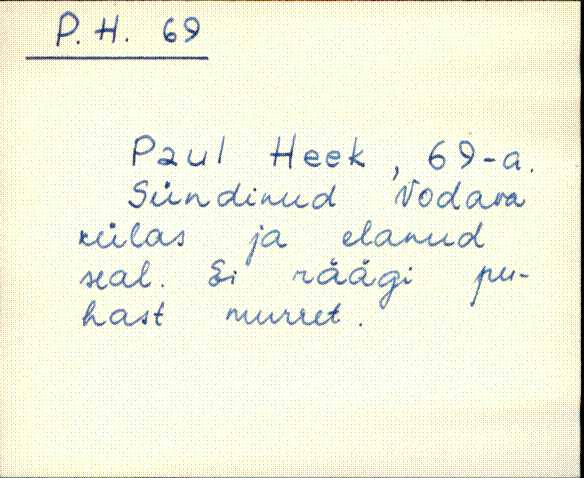 P. H. 69
Paul Heek, 69-a.
Sündinud Vodava
külas ja elanud
seal. Ei räägi pu-
hast murret.